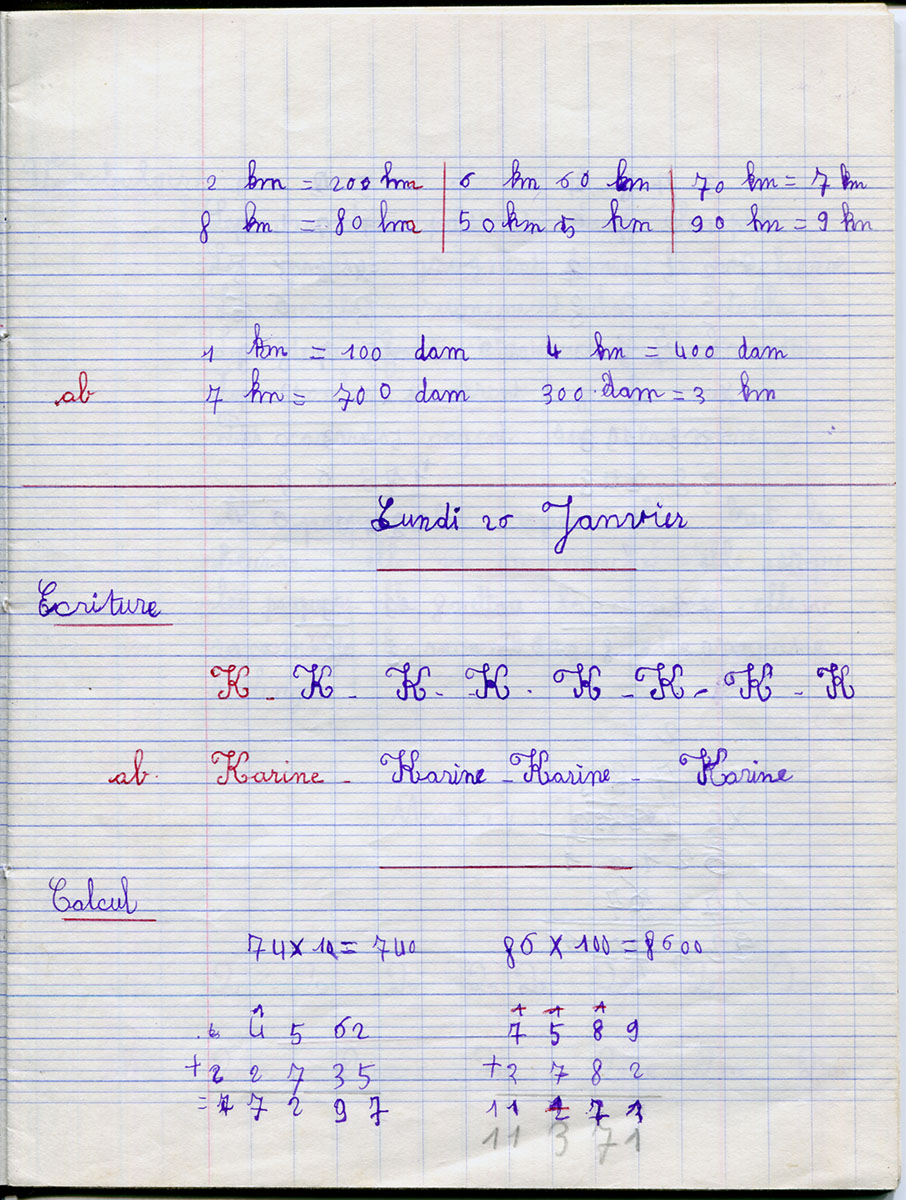 2 km = 200 hm | 6 km 60 hm | 70 hm = 7 km
8 km = 80 hm | 50 hm 5 km | 90 hm = 9 km
1 km = 100 dam 4 km = 400 dam
ab 7 km = 700 dam 300 dam = 3 km
Lundi 26 Janvier
Ecriture
K - K - K - K - K - K - K - K
ab. Karine - Karine - Karine - Karine
Calcul
74 x 10 = 740 86 x 100 = 8600
1 1 1 1
4 5 6 2 7 5 8 9
+ 2 2 7 3 5 + 2 7 8 2
7 2 9 7 11 7 1
11 3 7 1